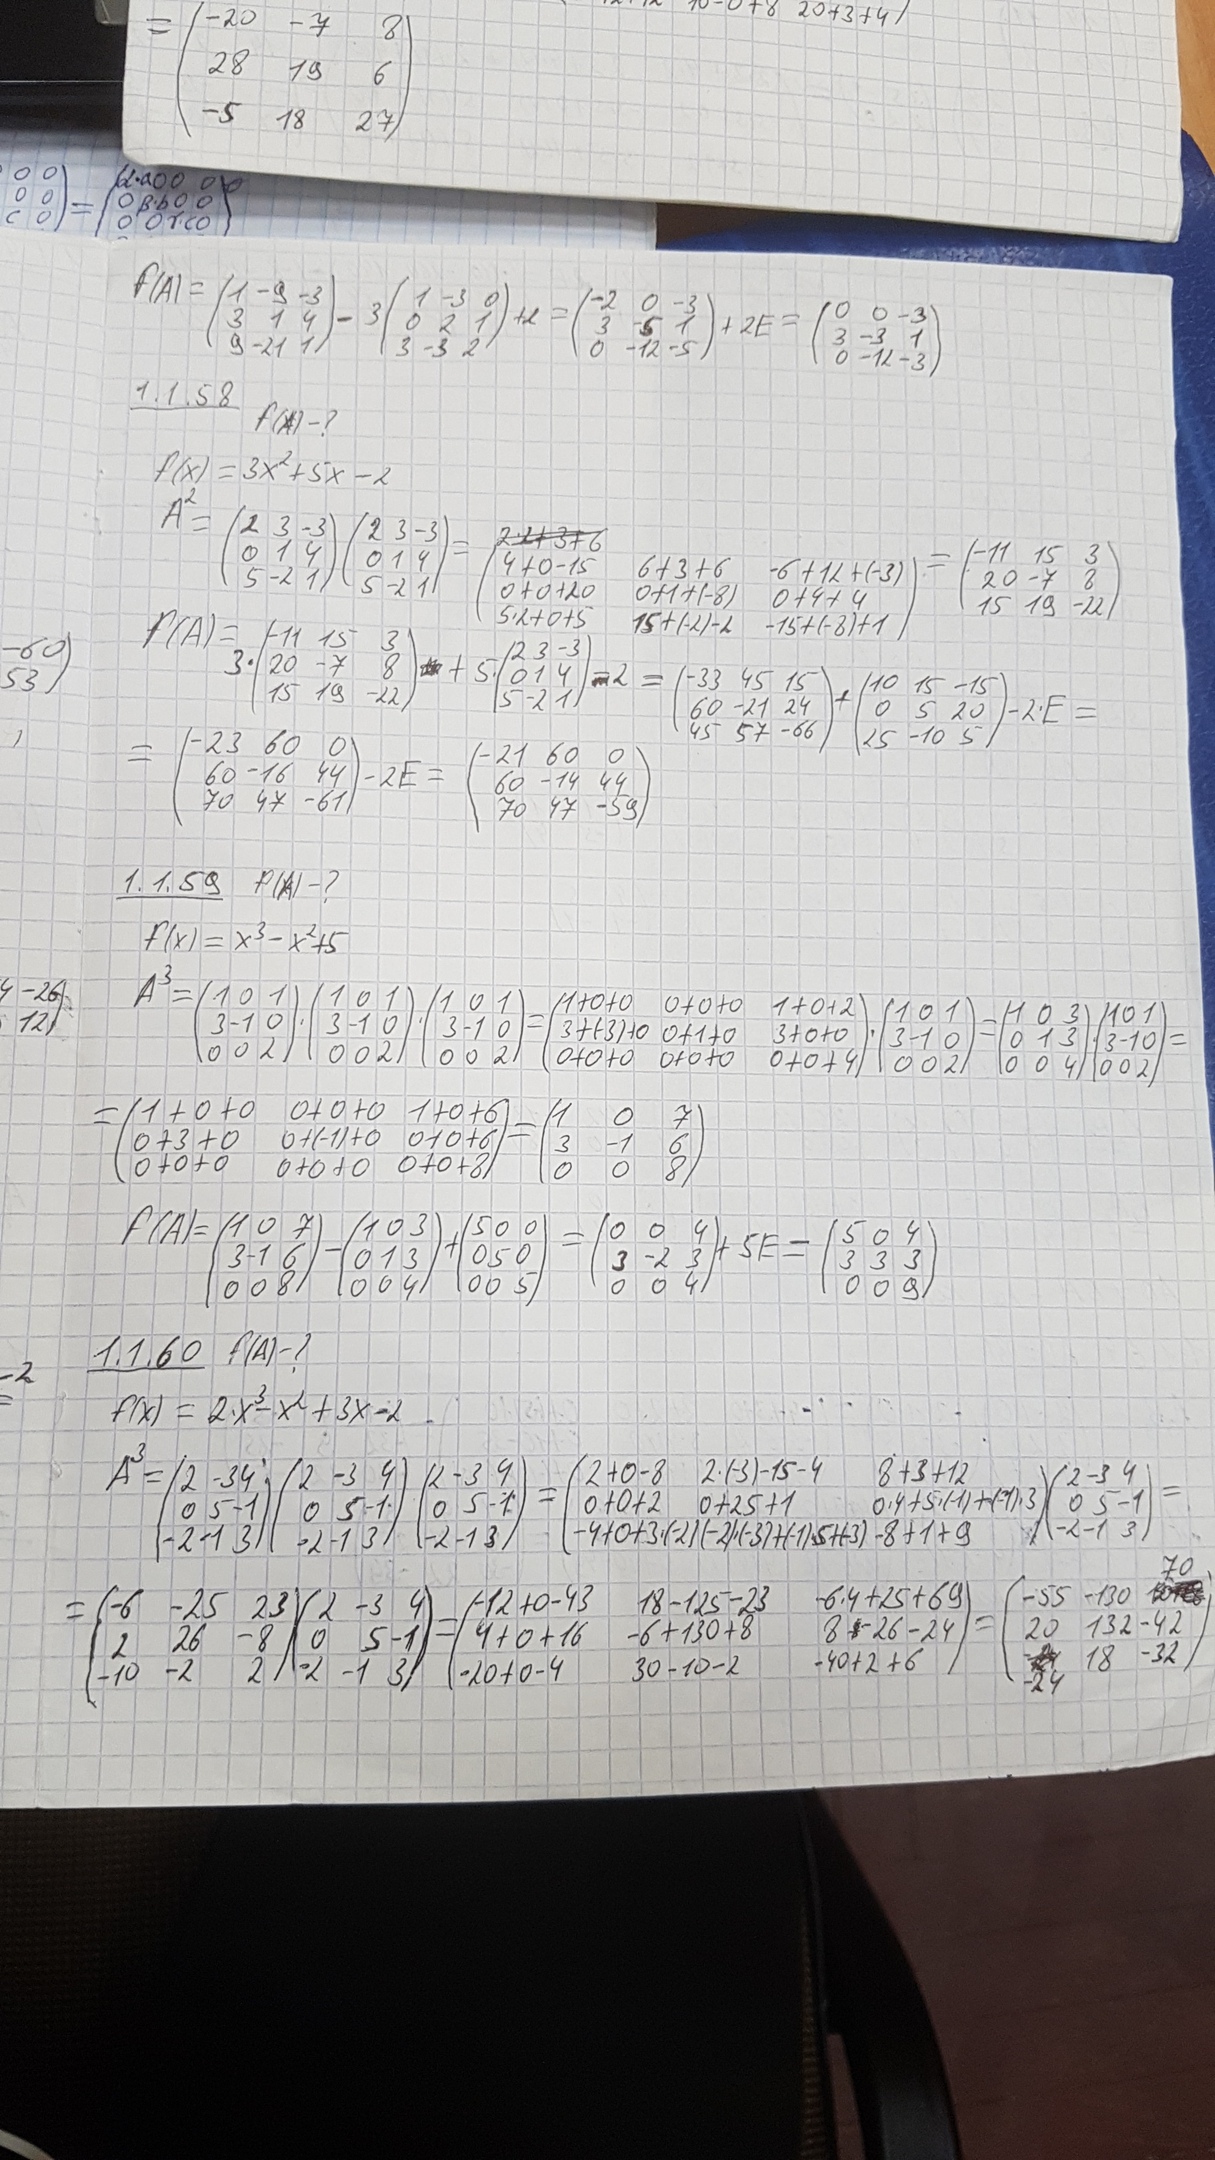 20+3+4)
= (-20 -7 8
28 19 6
-5 18 27)
0 0
0 0
c 0) = (α·a 0 0 0
0 β·b 0 0
0 0 γ·c 0
f(A) = (1 -9 -3
3 1 4
9 -21 1) - 3(1 -3 0
0 2 1
3 -3 2) +2 = (-2 0 -3
3 -5 1
0 -12 -5) + 2E = (0 0 -3
3 -3 1
0 -12 -3)
1.1.58
f(A) - ?
f(x) = 3x² + 5x - 2
A² = (2 3 -3
0 1 4
5 -2 1) (2 3 -3
0 1 4
5 -2 1) = 2·2+3+6
(4+0-15 6+3+6 -6+12+(-3)
0+0+20 0+1+(-8) 0+4+4
5·2+0+5 15+(-2)-2 -15+(-8)+1) = (-11 15 3
20 -7 8
15 19 -22)
f(A) = 3·(-11 15 3
20 -7 8
15 19 -22) + 5·(2 3 -3
0 1 4
5 -2 1) - 2 = (-33 45 15
60 -21 24
45 57 -66) + (10 15 -15
0 5 20
25 -10 5) - 2·E =
= (-23 60 0
60 -16 44
70 47 -61) - 2E = (-21 60 0
60 -14 44
70 47 -59)
-60
53)
1.1.59 f(A) - ?
f(x) = x³ - x² + 5
4 -26
12)
A³ = (1 0 1
3 -1 0
0 0 2) · (1 0 1
3 -1 0
0 0 2) · (1 0 1
3 -1 0
0 0 2) = (1+0+0 0+0+0 1+0+2
3+(-3)+0 0+1+0 3+0+0
0+0+0 0+0+0 0+0+4) · (1 0 1
3 -1 0
0 0 2) = (1 0 3
0 1 3
0 0 4) · (1 0 1
3 -1 0
0 0 2) =
= (1+0+0 0+0+0 1+0+6
0+3+0 0+(-1)+0 0+0+6
0+0+0 0+0+0 0+0+8) = (1 0 7
3 -1 6
0 0 8)
f(A) = (1 0 7
3 -1 6
0 0 8) - (1 0 3
0 1 3
0 0 4) + (5 0 0
0 5 0
0 0 5) = (0 0 4
3 -2 3
0 0 4) + 5E = (5 0 4
3 3 3
0 0 9)
1.1.60 f(A) - ?
-2
=
f(x) = 2·x³ - x² + 3x - 2
A³ = (2 -3 4
0 5 -1
-2 -1 3) · (2 -3 4
0 5 -1
-2 -1 3) · (2 -3 4
0 5 -1
-2 -1 3) = (2+0-8 2·(-3)-15-4 8+3+12
0+0+2 0+25+1 0·4+5·(-1)+(-1)·3
-4+0+3·(-2) (-2)·(-3)+(-1)·5+(-3) -8+1+9) (2 -3 4
0 5 -1
-2 -1 3) =
= (-6 -25 23
2 26 -8
-10 -2 2) (2 -3 4
0 5 -1
-2 -1 3) = (-12+0-43 18-125-23 -6·4+25+69
4+0+16 -6+130+8 8-26-24
-20+0-4 30-10-2 -40+2+6) = (-55 -130 70
20 132 -42
-24 18 -32)